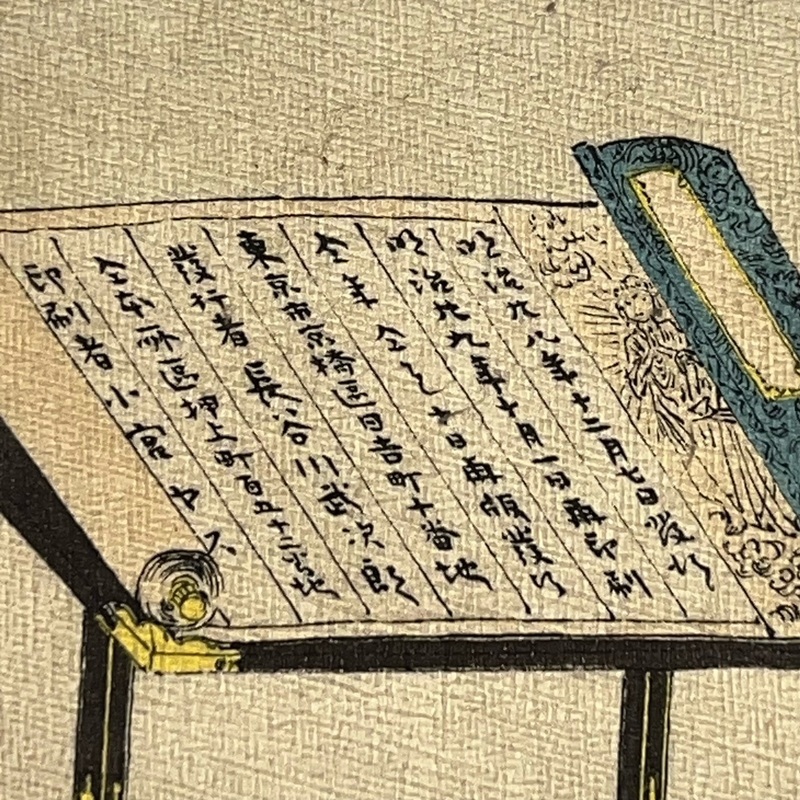 明治廿八年十二月七日發行
明治廿九年十月一日再印刷
仝年仝月十日再版發行
東京市京橋區日吉町十番地
發行者 長谷川武次郎
仝本所區押上町百五十二番地
印刷者小宮ヤス